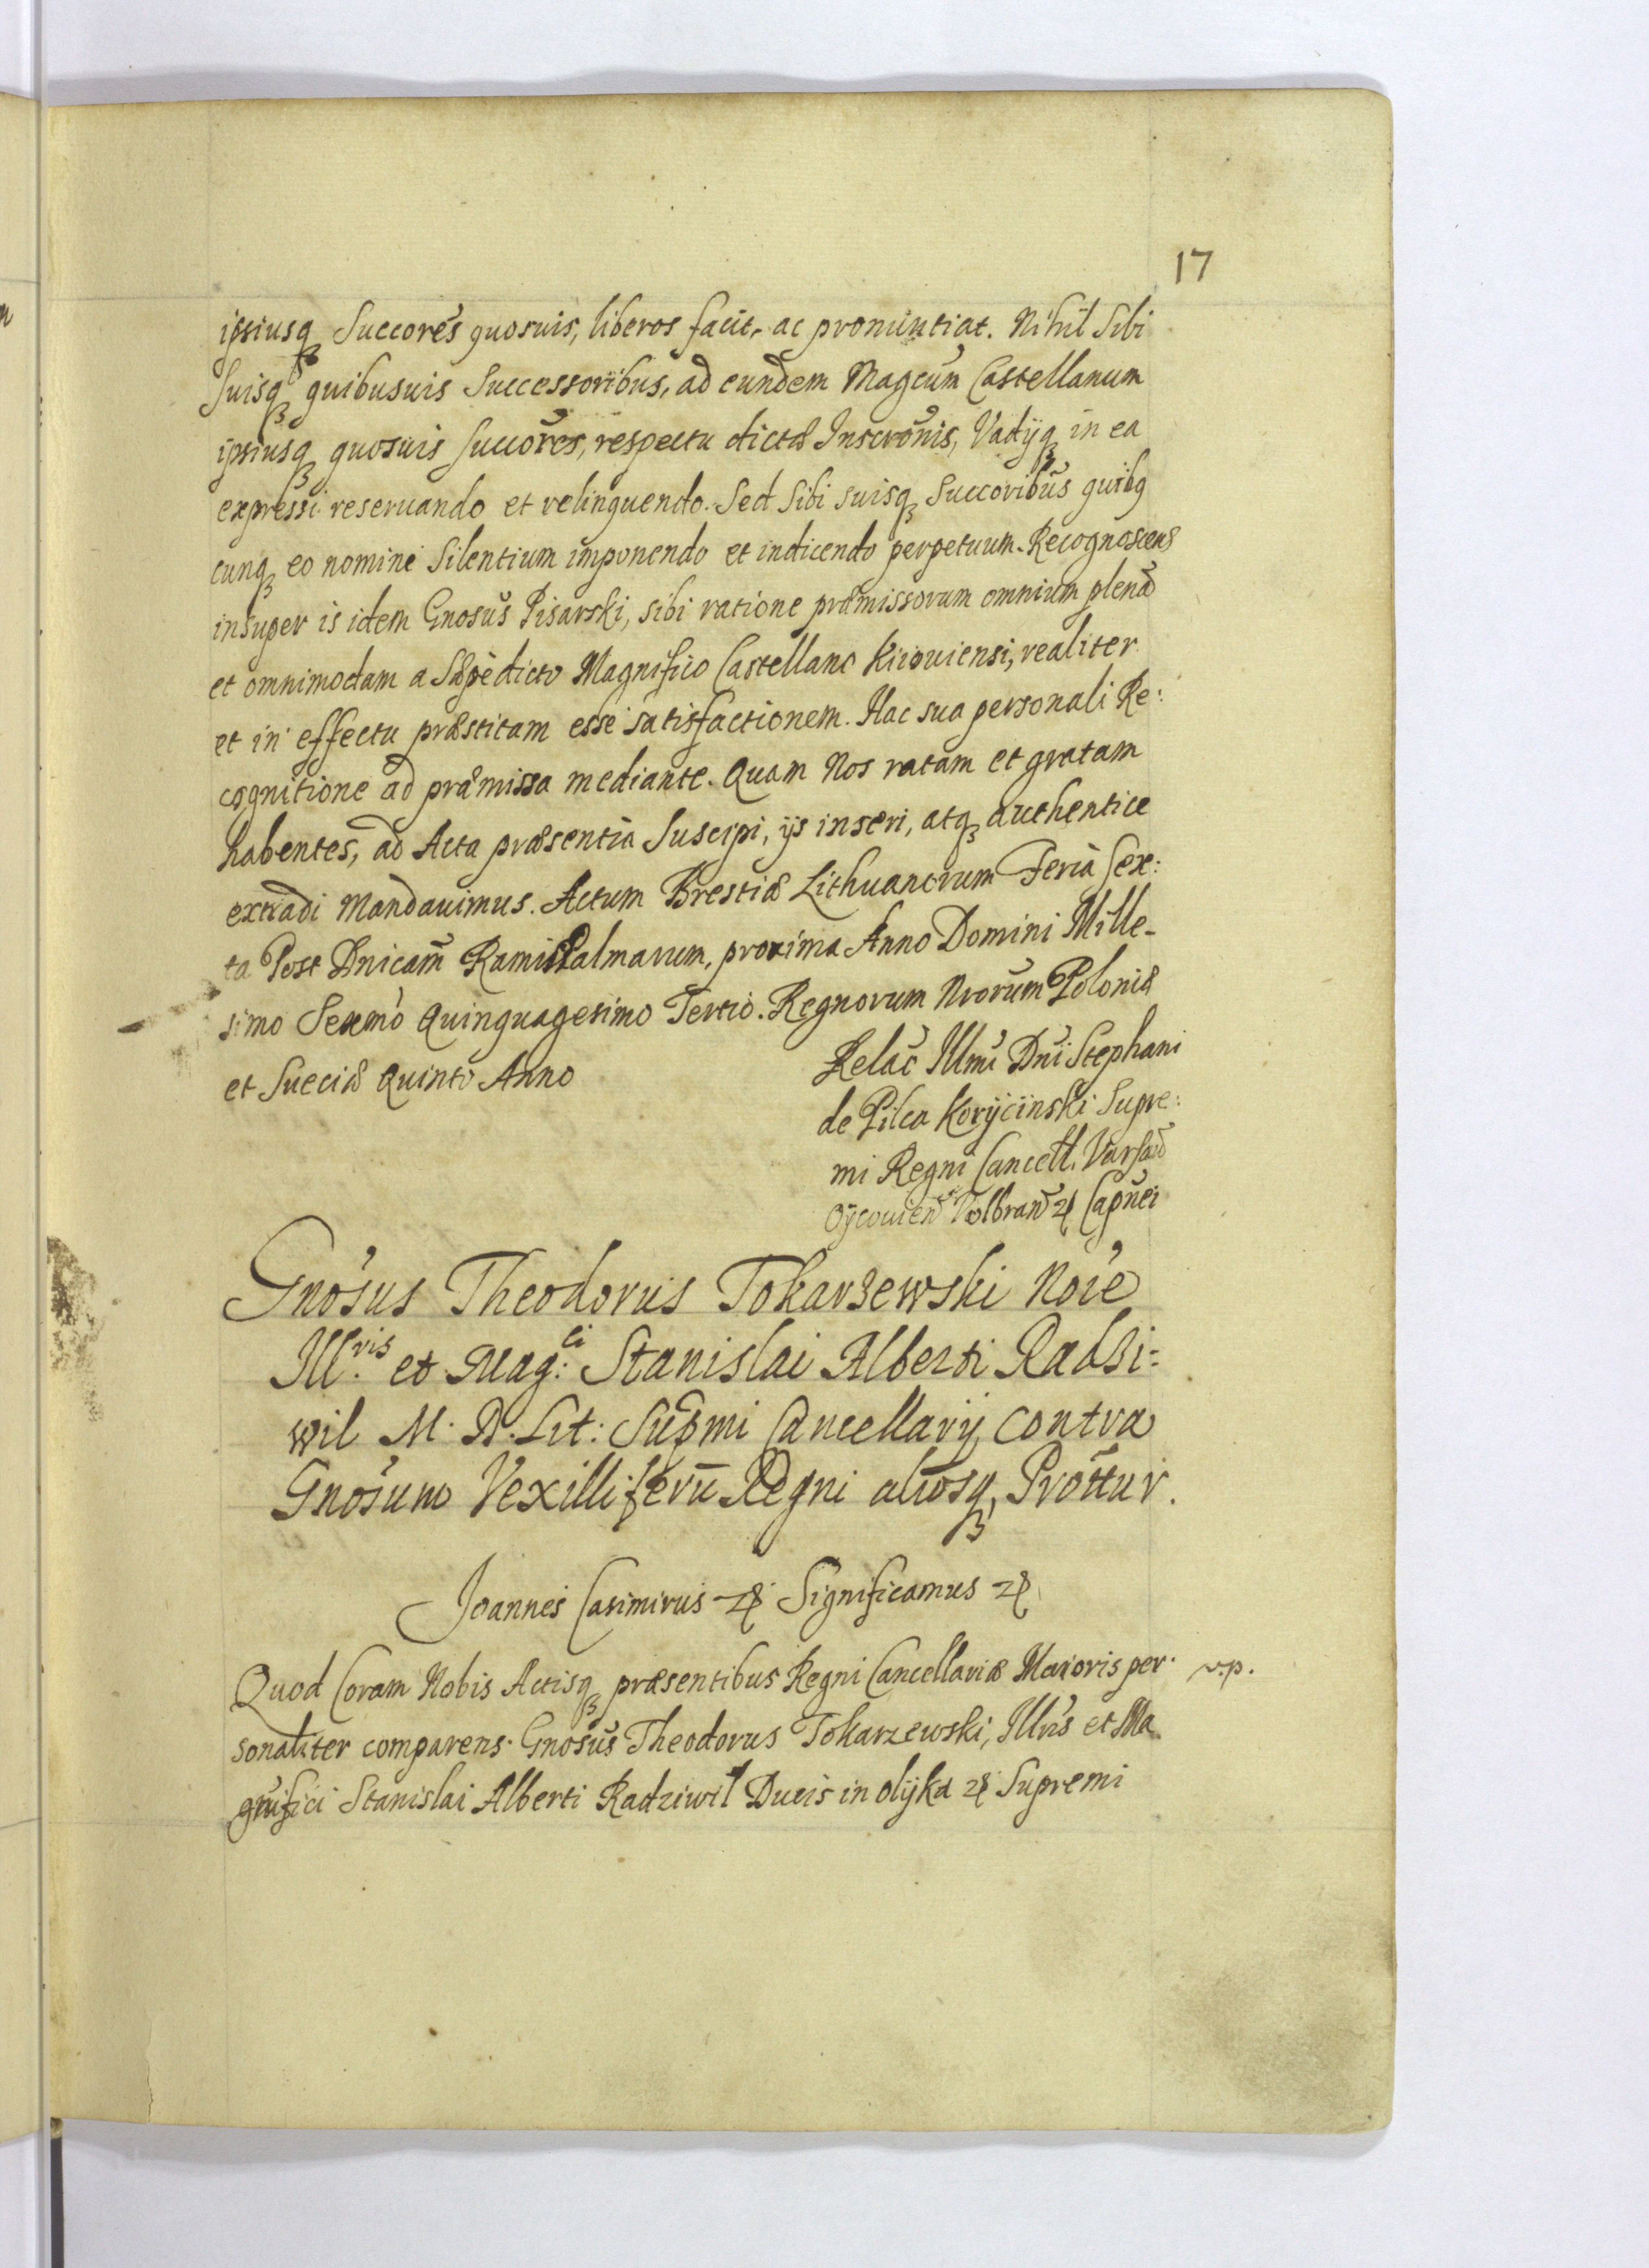 17
ipsiusq́ꝫ Succores̃ quosuis, liberos facit, ac pronuntiat. Nihil Sibi
Suisqꝫ quibusuis Successoribus, ad eundem Magcum̃ Castellanum
ipsiusqꝫ quosuis Succores̃, respectu dictæ Inscronis̃, Vadijqꝫ in ea
expressi reseruando et relinquendo. Sed Sibi suisqꝫ Succoribus̃ quibq
cunqꝫ eo nomine Silentium imponendo et indicendo perpetuum. Recognoscens
insuper is idem Gnosus̃ Pisarski, sibi ratione præmissorum omnium plenã
et omnimodam a Sæpedicto Magnifico Castellano Kiiouiensi, realiter
et in effectu præstitam esse satisfactionem. Hac sua personali Re:
cognitione ad præmissa mediante. Quam Nos ratam et gratam
habentes, ad Acta præsentia Suscipi, ijs inseri, atqꝫ authentice
extradi Mandauimus. Actum Brestiæ Lithuanorum Feria Sex:
ta Post Dnicam̃ Ramis Palmarum, proxima Anno Domini Mille-
simo Sexmõ Quinquagesimo Tertio. Regnorum Nrorum̃ Poloniæ
et Sueciæ Quinto Anno
Relac̃ Illmi Dni Stephani
de Pilca Koryciinski Supre:
mi Regni Cancell. Varsau̇
Oÿcouien̄ Wolbran̄ ꝛc Capnei
Gnosus̃ Theodorus Tokarzewski Noie
Ill:ris et Mag:ci Stanislai Alberti Radzi=
wil M. D. Lit: Supmi Cancellarij contra
Gnosum̃ Vexilliferū Regni aliosqꝫ Prottur.
Joannes Casimirus ꝛc Significamus ꝛc
Quod Coram Nobis Actisqꝫ præsentibus Regni Cancellariæ Maioris per v.p.
sonaliter comparens Gnosus̃ Theodorus Tokarzewski, Illris̃ et Ma
gnifici Stanislai Alberti Radziwil Ducis in Olÿka ꝛc Supremi